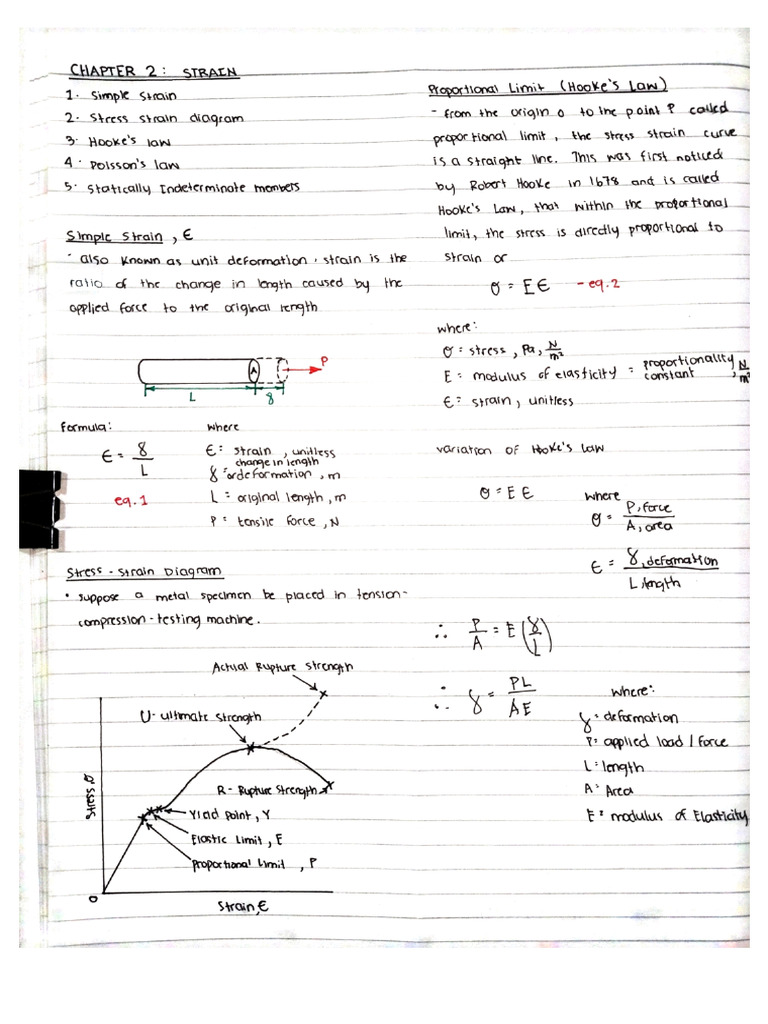 CHAPTER 2: STRAIN
1. Simple Strain
2. Stress Strain diagram
3. Hooke's law
4. Poisson's law
5. Statically Indeterminate members
Simple Strain, ε
· also known as unit deformation. strain is the
ratio of the change in length caused by the
applied force to the original length
A
P
L
δ
formula:
where
ε = δ/L
eq.1
ε: strain, unitless
δ = change in length or deformation, m
L = original length, m
P = tensile force, N
Stress - Strain Diagram
• suppose a metal specimen be placed in tension-
compression-testing machine.
Actual Rupture Strength
U- ultimate strength
R- Rupture Strength
Yield Point, Y
Elastic Limit, E
Proportional Limit, P
Stress σ
0
Strain, ε
Proportional Limit (Hooke's Law)
- from the origin o to the point P called
proportional limit, the stress strain curve
is a straight line. This was first noticed
by Robert Hooke in 1678 and is called
Hooke's Law, that within the proportional
limit, the stress is directly proportional to
strain or
σ = Eε - eq.2
where:
σ = stress, Pa, N/m²
E = modulus of elasticity = proportionality constant, N/m²
ε = strain, unitless
variation of Hooke's Law
σ = E ε
where
σ = P, force / A, area
ε = δ, deformation / L, length
∴ P/A = E(δ/L)
∴ δ = PL/AE
where:
δ = deformation
P = applied load / force
L = length
A = Area
E = modulus of Elasticity